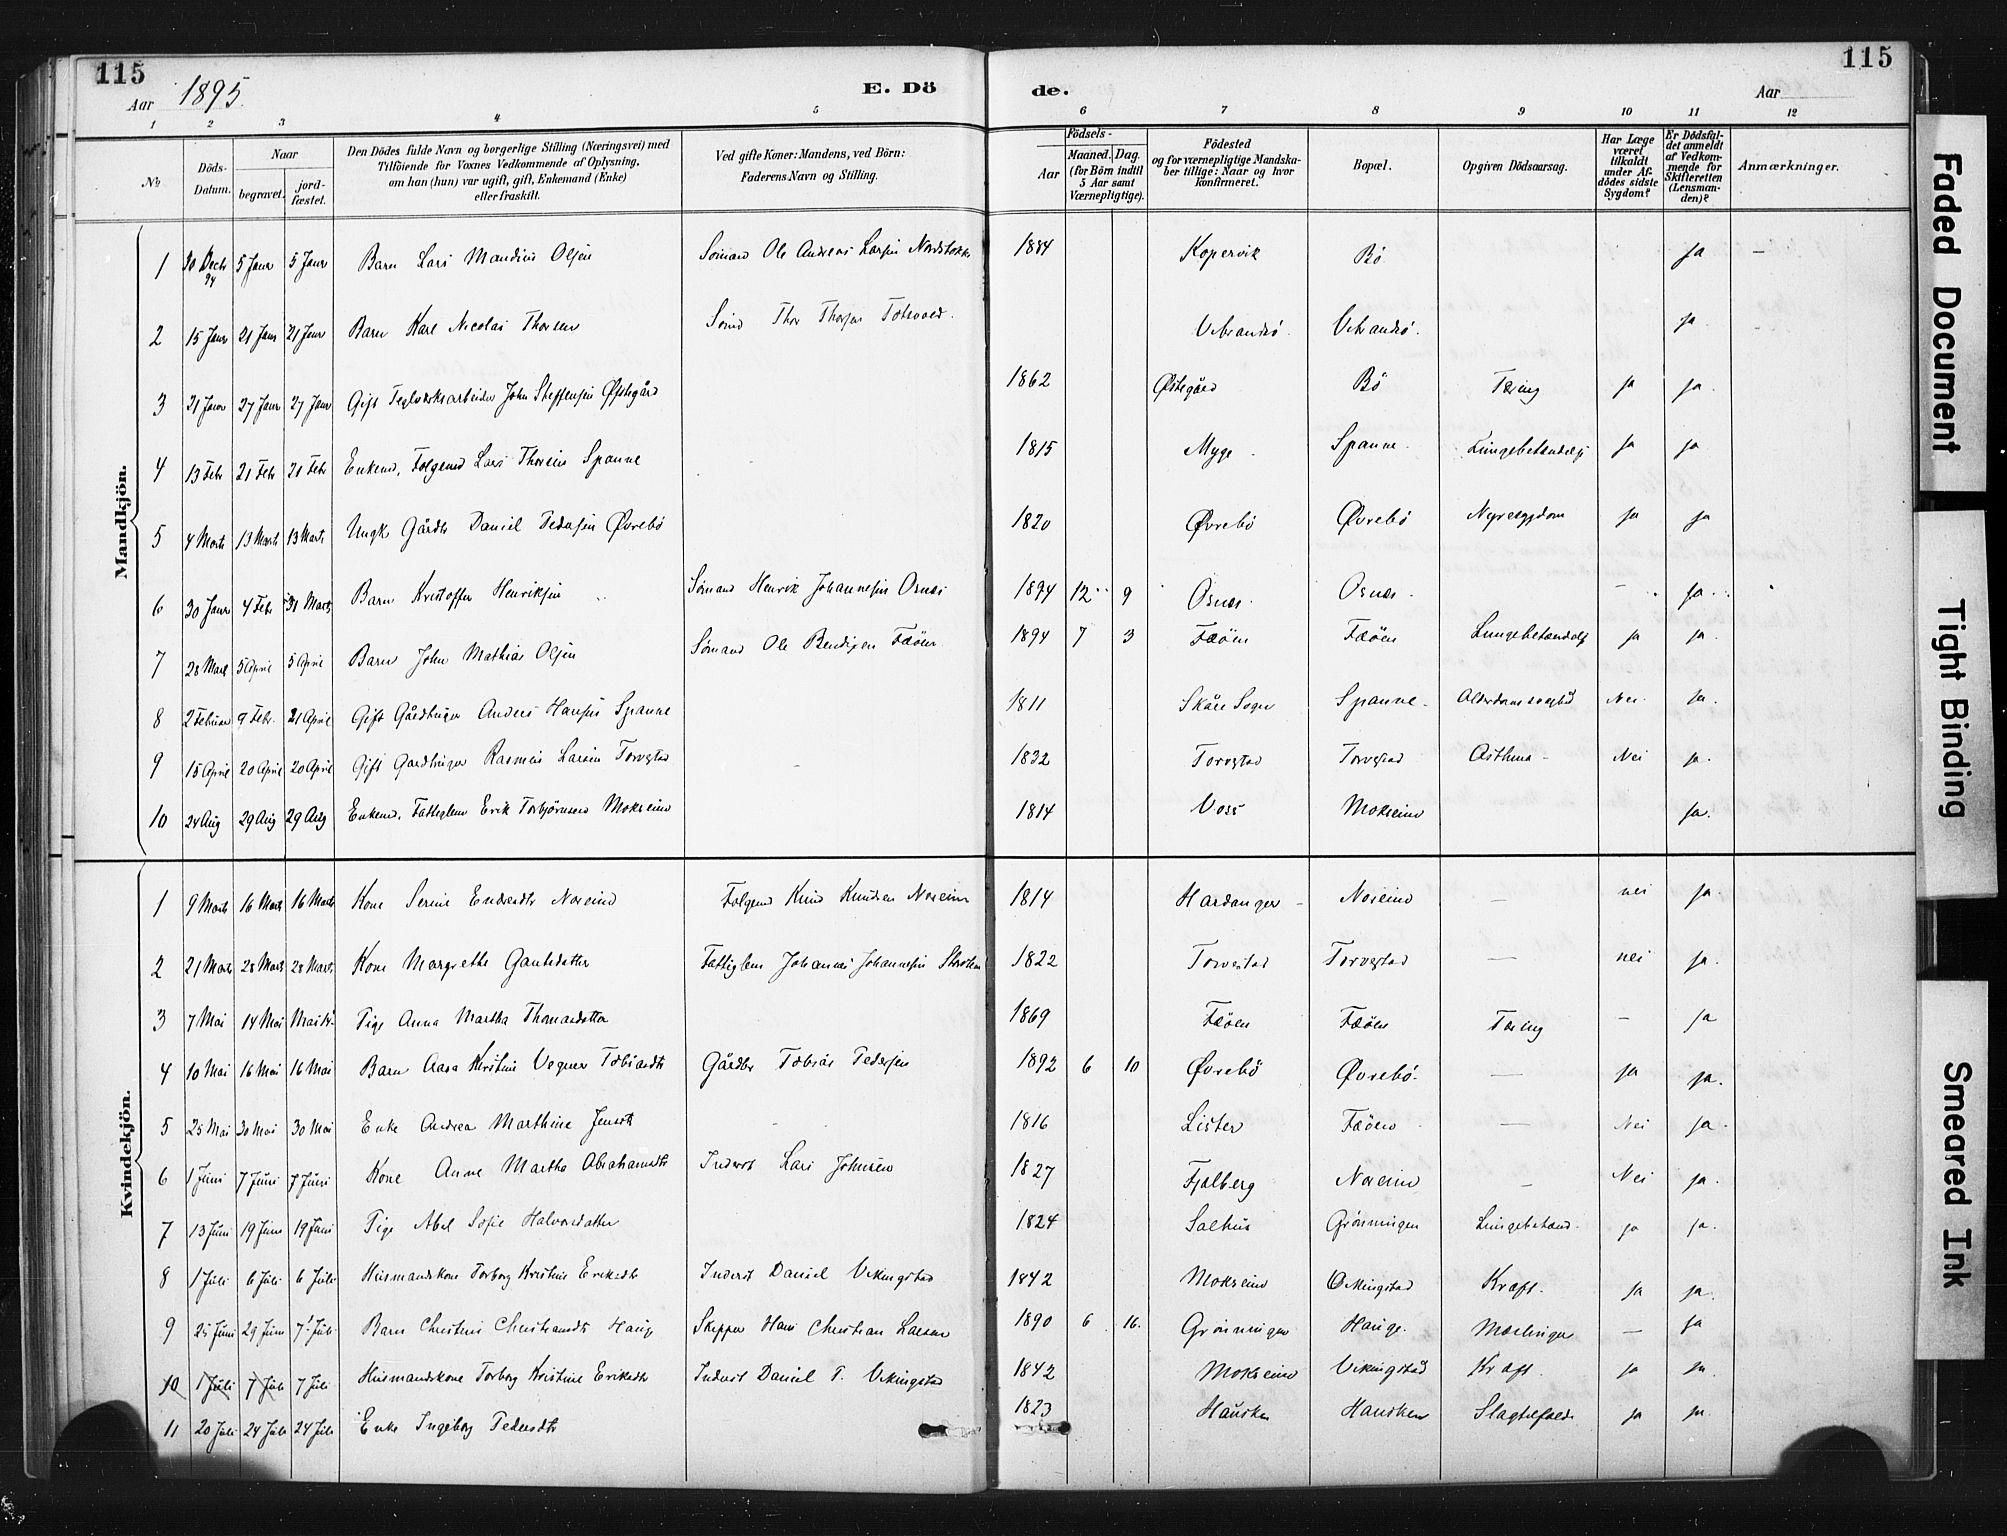 115
Aar 1895.
E. Dö
de.
Aar
115
1 2 3 4 5 6 7 8 9 10 11 12
No
Döds-Datum.
Naar
begravet.
jord-fæstet.
Den Dödes fulde Navn og borgerlige Stilling (Næringsvei) med
Tilföiende for Voxnes Vedkommende af Oplysning,
om han (hun) var ugift, gift, Enkemand (Enke)
eller fraskilt.
Ved gifte Koner: Mandens, ved Börn:
Faderens Navn og Stilling.
Födsels-
Aar
Maaned. Dag.
(for Börn indtil
5 Aar samt
Værnepligtige).
Födested
og for værnepligtige Mandska-
ber tillige: Naar og hvor
konfirmeret.
Bopæl.
Opgiven Dödsaarsag.
Har Læge
været
tilkaldt
under Af-
dödes sidste
Sygdom?
Er Dödsfal-
det anmeldt
af Vedkom-
mende for
Skifteretten
(Lensman-
den)?
Anmærkninger.
Mandkjön.
1 30 Decb 94 5 Janr 5 Janr Barn Lars Mandius Olsen Sömand Ole Andreas Larsen 1884 Kopervik Bö ja –
2 15 Janr 21 Janr 21 Janr Barn Karl Nicolai Thorsen Thor Thorsen Vibrandsö. Vibrandsö. ja
3 21 Janr 27 Janr 27 Janr Gift Teglverksarbeider John Steffensen Østegård 1862 Østegård Bö Tæring ja ja.
4 13 Febr 21 Febr 21 Febr Enkem. Folgemd Lars Thorsen Spanne 1815 Myge Spanne Lungebetændelse ja ja
5 4 Marts 13 Marts 13 Marts Ungk Gårdbr Daniel Pedersen Øvrebö 1820 Øvrebö Øvrebö Nyresygdom ja ja
6 30 Janr 4 Febr 31 Marts Barn Kristoffer Henriksen Sömand Henrik Johannesen Osnæs 1894 12 9 Osnæs Osnæs – ja
7 28 Marts 5 April 5 April Barn John Mathias Olsen Sömand Ole Bendixen Fæöen 1894 7 3 Fæöen Fæöen Lungebetændelse ja ja
8 2 Februar 9 Febr. 21 April Gift Gårdbruger Anders Hansen Spanne 1811 Skåre Sogn Spanne Alderdomssvaghed Nei ja
9 15 April 20 April 20 April Gift Gardbruger Rasmus Larsen Torvestad 1832 Torvestad Torvestad Asthma Nei ja.
10 24 Aug 29 Aug 29 Aug Enkem. Fattiglem Erik Torbjörnsen Mokseim 1814 Voss Mokseim ja.
Kvindekjön.
1 9 Marts 16 Marts 16 Marts Kone Serine Endresdtr Noreim Folgemd Knud Knudsen Noreim 1814 Hardanger Noreim – nei ja
2 21 Marts 28 Marts 28 Marts Kone Margrethe Gautedatter Fattiglem Johannes Johannesen 1822 Torvestad Torvestad – nei ja.
3 7 Mai 14 Mai Mai 14 Pige Anna Martha Thomasdatter 1869 Fæöen Fæöen Tæring – ja
4 10 Mai 16 Mai 16 Mai Barn Aasa Kristine Vegner Tobiasdtr Gårdbr Tobias Pedersen 1892 6 10 Øvrebö Øvrebö. – ja ja.
5 25 Mai 30 Mai 30 Mai Enke Andrea Marthine Jensdtr – 1816 Lister Fæöen – Nei ja
6 1 Juni 7 Juni 7 Juni Kone Anne Martha Abrahamsdtr Inderst Lars Johnsen 1827 Fjelberg Noreim – Nei ja.
7 13 Juni 19 Juni 19 Juni Pige Abel Sofie Halvorsdatter 1824 Salhus Grönningen Lungebetænd. ja ja.
8 1 Juli 6 Juli 6 Juli Husmandskone Torborg Kristine Eriksdtr Inderst Daniel Vikingstad 1842 Mokseim Vikingstad Kræft. ja ja.
9 25 Juni 29 Juni 7 Juli Barn Christine Christiansdtr Hauge Skipper Hans Christian Larsen 1890 6 16. Grönningen Hauge. Mæslinger – ja
10 1 Juli 7 Juli 7 Juli Husmandskone Torborg Kristine Eriksdtr Inderst Daniel T. Vikingstad 1842 Mokseim Vikingstad Kræft ja ja.
11 20 Juli 24 Juli 24 Juli Enke Ingeborg Pedersdtr 1823 Hausken Hausken Slagtilfælde ja ja
Faded Document
Tight Binding
Smeared Ink